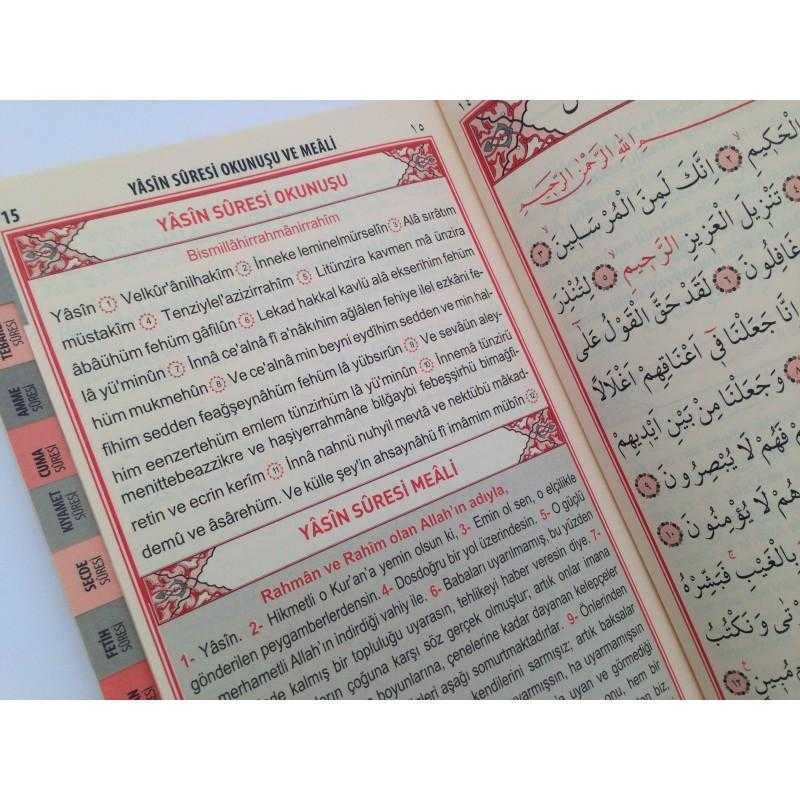 15
YÂSİN SÛRESİ OKUNUŞU VE MEÂLİ
١٥
YÂSİN SÛRESİ OKUNUŞU
Bismillâhirrahmânirrahîm
Yâsîn 1 Velkûr'ânilhakîm 2 İnneke leminelmürselîn 3 Alâ sırâtım
müstakîm 4 Tenziylel'azizirrahîm 5 Litünzira kavmen mâ ünzira
âbâühüm fehüm gâfilûn 6 Lekad hakkal kavlü alâ ekserihim fehüm
lâ yü'minûn 7 İnnâ ce'alnâ fî a'nâkıhim ağlâlen fehiye ilel ezkâni fe-
hüm mukmehûn 8 Ve ce'alnâ min beyni eydîhim sedden ve min hal-
fihim sedden feağşeynâhüm fehüm lâ yübsırûn 9 Ve sevâün aley-
him eenzertehüm emlem tünzirhüm lâ yü'minûn 10 İnnemâ tünzirü
menittebeazzikre ve haşiyerrahmâne bilğaybi febeşşirhü bimağfi-
retin ve ecrin kerîm 11 İnnâ nahnü nuhyil mevtâ ve nektübü mâkad-
demû ve âsârehüm. Ve külle şey'in ahsaynâhü fî imâmim mübîn 12
YÂSİN SÛRESİ MEÂLİ
Rahmân ve Rahîm olan Allah'ın adıyla,
1- Yâsîn. 2- Hikmetli o Kur'an'a yemin olsun ki, 3- Emin ol sen, o elçilikle
gönderilen peygamberlerdensin. 4- Dosdoğru bir yol üzerindesin. 5- O güçlü
merhametli Allah'ın indirdiği vahiy ile. 6- Babaları uyarılmamış, bu yüzden
kalmış bir topluluğu uyarasın, tehlikeyi haber veresin diye. 7-
çoğuna karşı söz gerçek olmuştur, artık onlar imana
boyunlarına, çenelerine kadar dayanan kelepçeler
aşağı somurtmaktadırlar. 9- Önlerinden
kendilerini sarmışız, artık baksalar
uyarmışsın, ha uyarmamışsın
uyan ve görmediği
onu, hem bir
biz,
SÛRESİ
AMME
SÛRESİ
CUMA
SÛRESİ
KIYAMET
SÛRESİ
SECDE
SÛRESİ
FETİH
SÛRESİ
١٤
اللهِ الرَّحْمٰنِ الرَّحِيمِ
الْحَكِيمِ ٢ اِنَّكَ لَمِنَ الْمُرْسَلِينَ ٣
٤ تَنْزِيلَ الْعَزِيزِ الرَّحِيمِ ٥ لِتُنْذِرَ
غَافِلُونَ ٦ لَقَدْ حَقَّ الْقَوْلُ عَلٰى
اِنَّا جَعَلْنَا فِى اَعْنَاقِهِمْ اَغْلَالًا
وَجَعَلْنَا مِنْ بَيْنِ اَيْدِيهِمْ
فَهُمْ لَا يُبْصِرُونَ ٩
لَا يُؤْمِنُونَ ١٠
بِالْغَيْبِ فَبَشِّرْهُ
وَنَكْتُبُ
مُبِينٍ ١٢